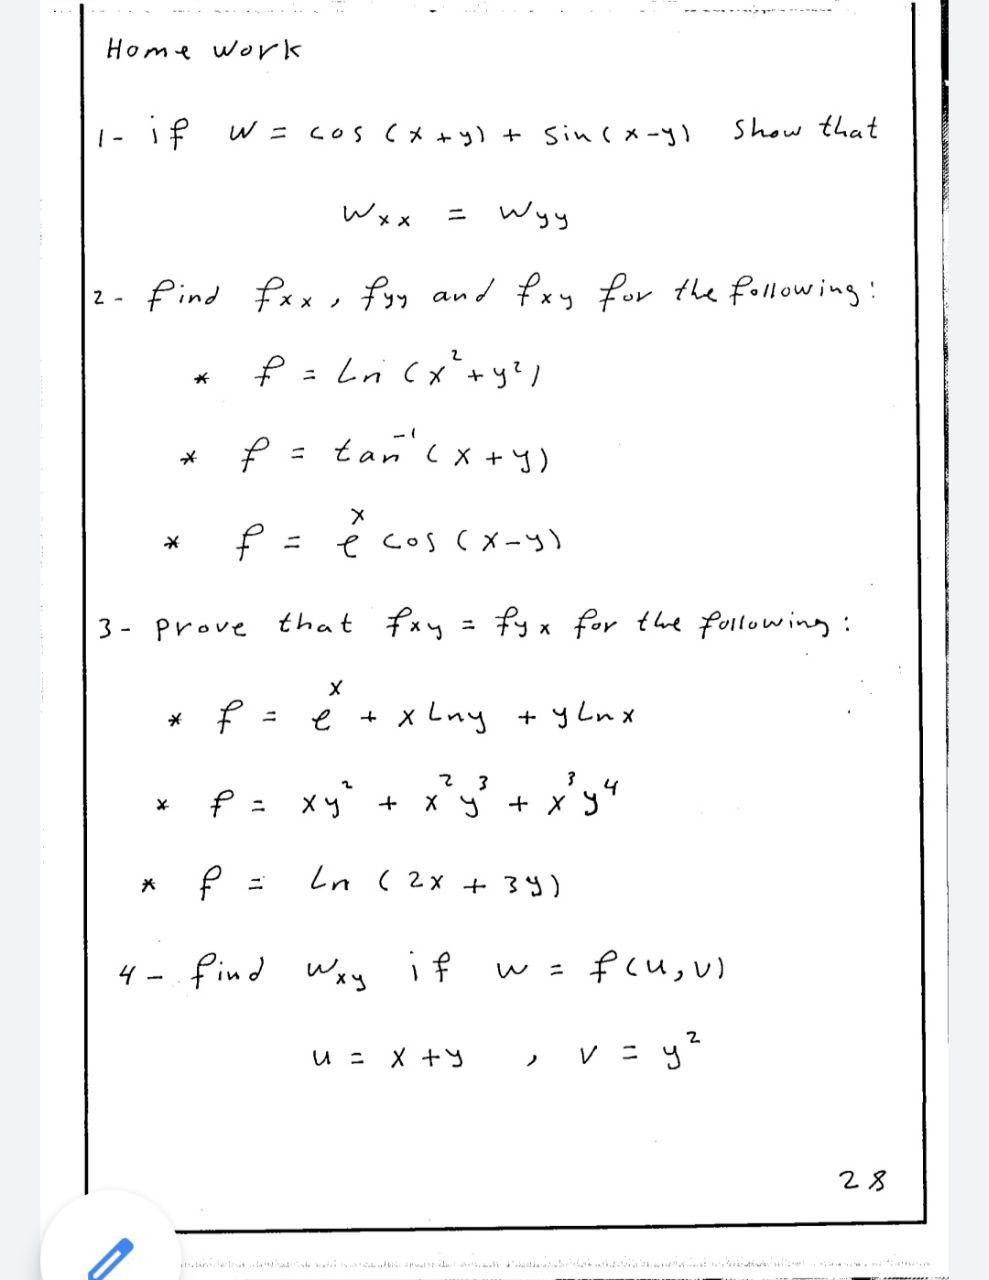 Home work
1- if w = cos (x+y) + sin(x-y) show that
wxx = wyy
2- find fxx, fyy and fxy for the following:
* f = Ln (x²+y²)
* f = tan⁻¹(x+y)
* f = eˣ cos (x-y)
3- prove that fxy = fyx for the following:
* f = eˣ + x Lny + y Lnx
* f = xy² + x²y³ + x³y⁴
* f = Ln (2x + 3y)
4- find wxy if w = f(u,v)
u = x+y , v = y²
28